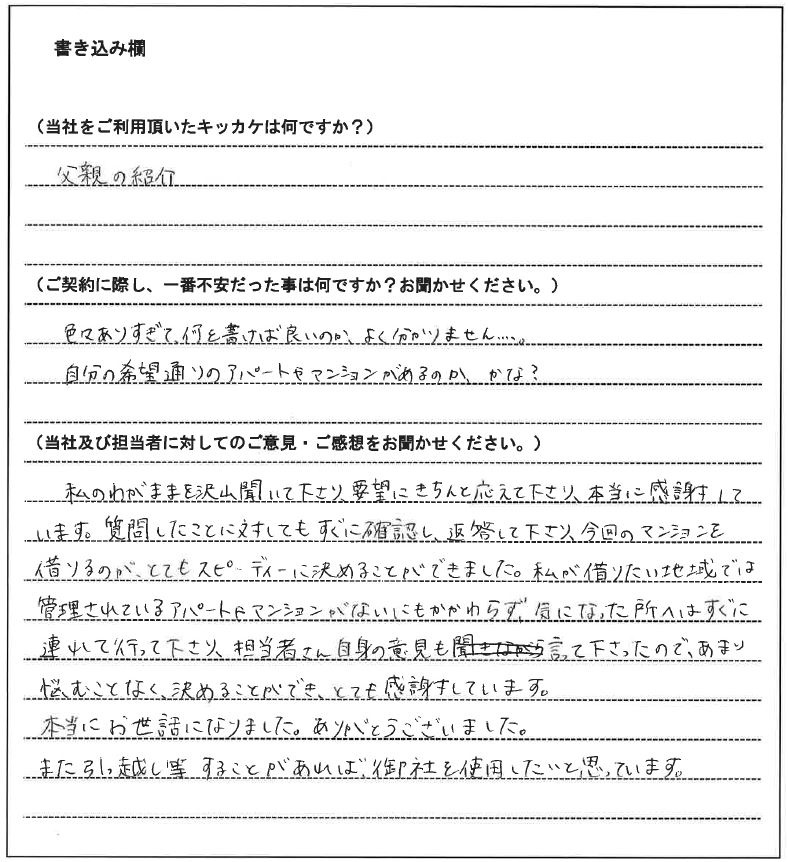 書き込み欄
（当社をご利用頂いたキッカケは何ですか？）
父親の紹介
（ご契約に際し、一番不安だった事は何ですか？お聞かせください。）
色々ありすぎて、何を書けば良いのか、よく分かりません…。
自分の希望通りのアパートやマンションがあるのか、かな？
（当社及び担当者に対してのご意見・ご感想をお聞かせください。）
私のわがままを沢山聞いて下さり、要望にきちんと応えて下さり、本当に感謝して
います。質問したことに対してもすぐに確認し、返答して下さり、今回のマンションを
借りるのが、とてもスピーディーに決めることができました。私が借りたい地域では
管理されているアパートやマンションがないにもかかわらず、気になった所へはすぐに
連れて行って下さり、担当者さん自身の意見も言って下さったので、あまり
悩むことなく、決めることができ、とても感謝しています。
本当にお世話になりました。ありがとうございました。
また引っ越し等することがあれば、御社を使用したいと思っています。